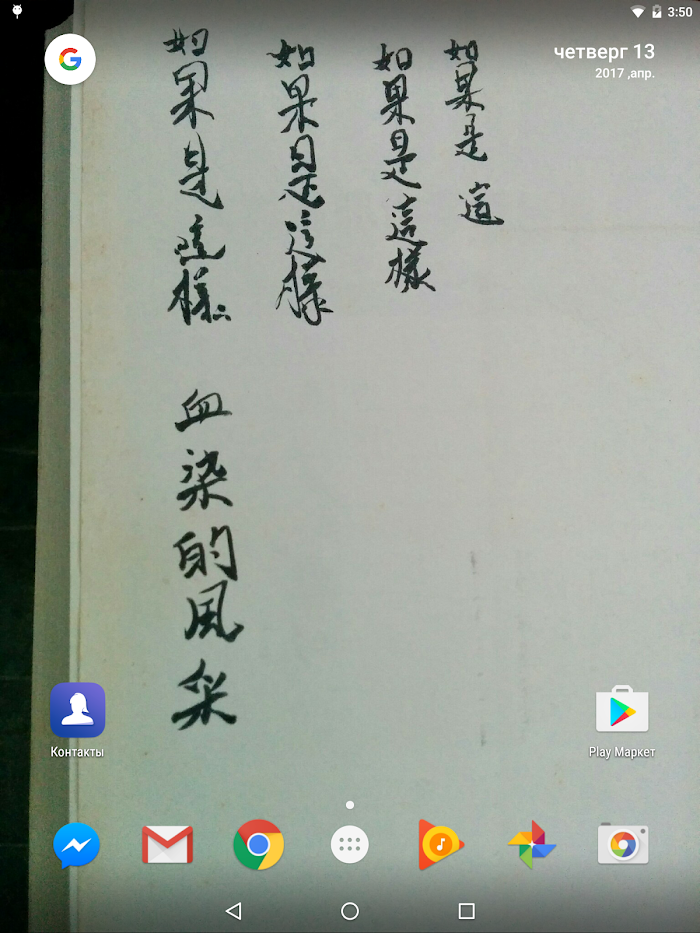 3:50
четверг 13
2017 ,апр.
如果是這
如果是這樣
如果是這樣
如果是這樣
血染的風采
Контакты
Play Маркет